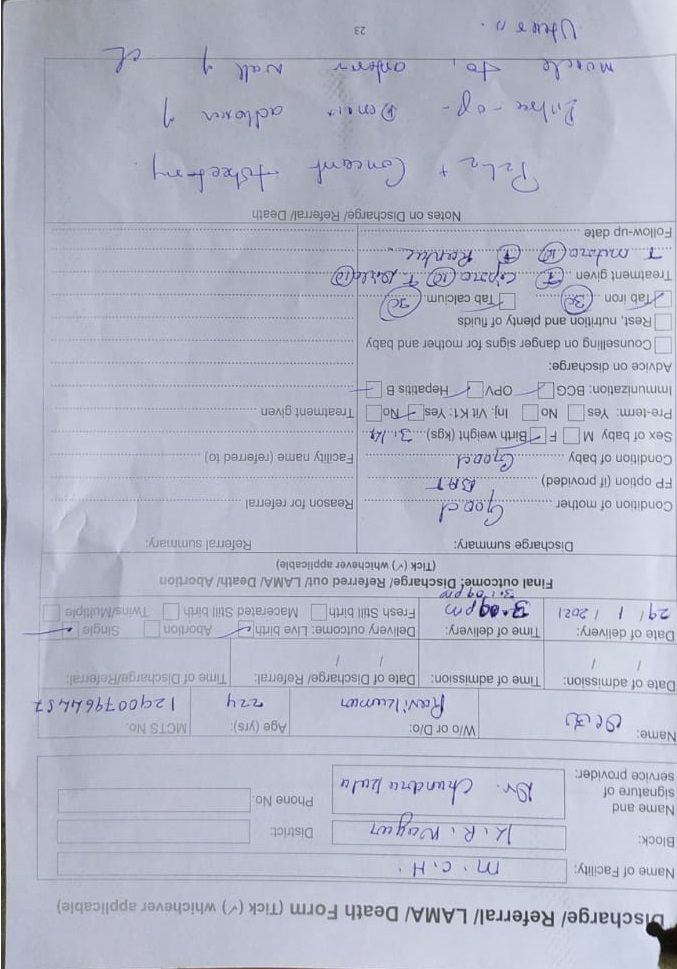 Discharge/ Referral/ LAMA/ Death Form (Tick (✓) whichever applicable)
Name of Facility: M.C.H.
Block: K.R. Nagar District:
Name and signature of service provider: Dr. Chandrakala Phone No.
Name: W/o or D/o: Ravikumar Age (yrs): 22y MCTS No. 129007964457
Date of admission: / / Time of admission: Date of Discharge/ Referral: / / Time of Discharge/Referral:
Date of delivery: 29/ 1 / 2021 Time of delivery: 3:09pm Delivery outcome: Live birth ✓ Abortion Single ✓
3:09pm Fresh Still birth Macerated Still birth Twins/Multiple
Final outcome: Discharge/ Referred out/ LAMA/ Death/ Abortion
(Tick (✓) whichever applicable)
Discharge summary: Referral summary:
Condition of mother Good Reason for referral
FP option (if provided)
Condition of baby Good Facility name (referred to)
Sex of baby M F ✓ Birth weight (kgs) 3.1kg
Pre-term: Yes No Inj. Vit K1: Yes ✓ No Treatment given
Immunization: BCG ✓ OPV ✓ Hepatitis B ✓
Advice on discharge:
Counselling on danger signs for mother and baby
Rest, nutrition and plenty of fluids
Tab iron 30 Tab calcium 30
Treatment given
Follow-up date
Notes on Discharge/ Referral/ Death
P2L2 +
adhesion of
muscle to, anterior wall of
Uterus.
23